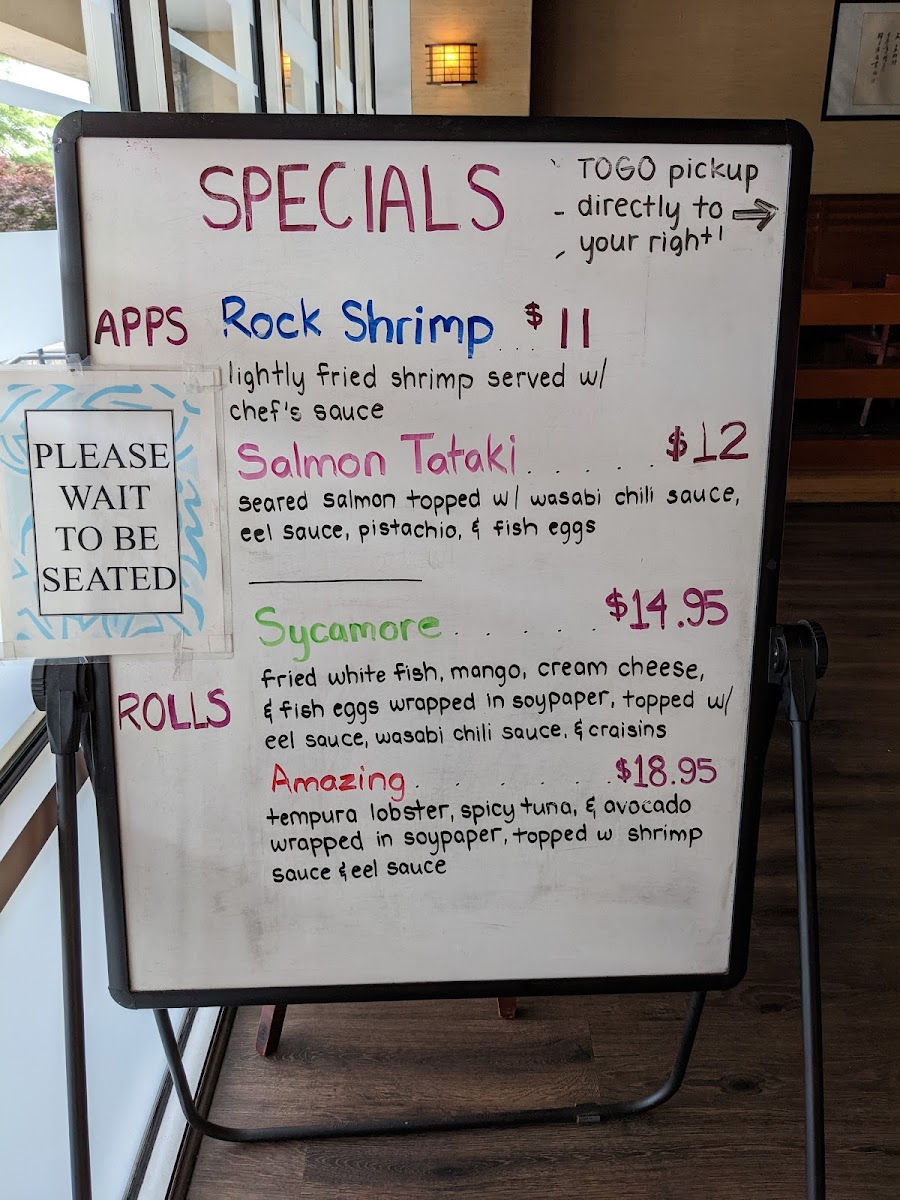 SPECIALS
TOGO pickup
- directly to →
your right!
APPS
Rock Shrimp $11
lightly fried shrimp served w/
chef's sauce
Salmon Tataki . . . . . . $12
seared salmon topped w/ wasabi chili sauce,
eel sauce, pistachio, & fish eggs
PLEASE
WAIT
TO BE
SEATED
ROLLS
Sycamore . . . . . $14.95
fried white fish, mango, cream cheese,
& fish eggs wrapped in soypaper, topped w/
eel sauce, wasabi chili sauce, & craisins
Amazing . . . . . . . $18.95
tempura lobster, spicy tuna, & avocado
wrapped in soypaper, topped w shrimp
sauce & eel sauce